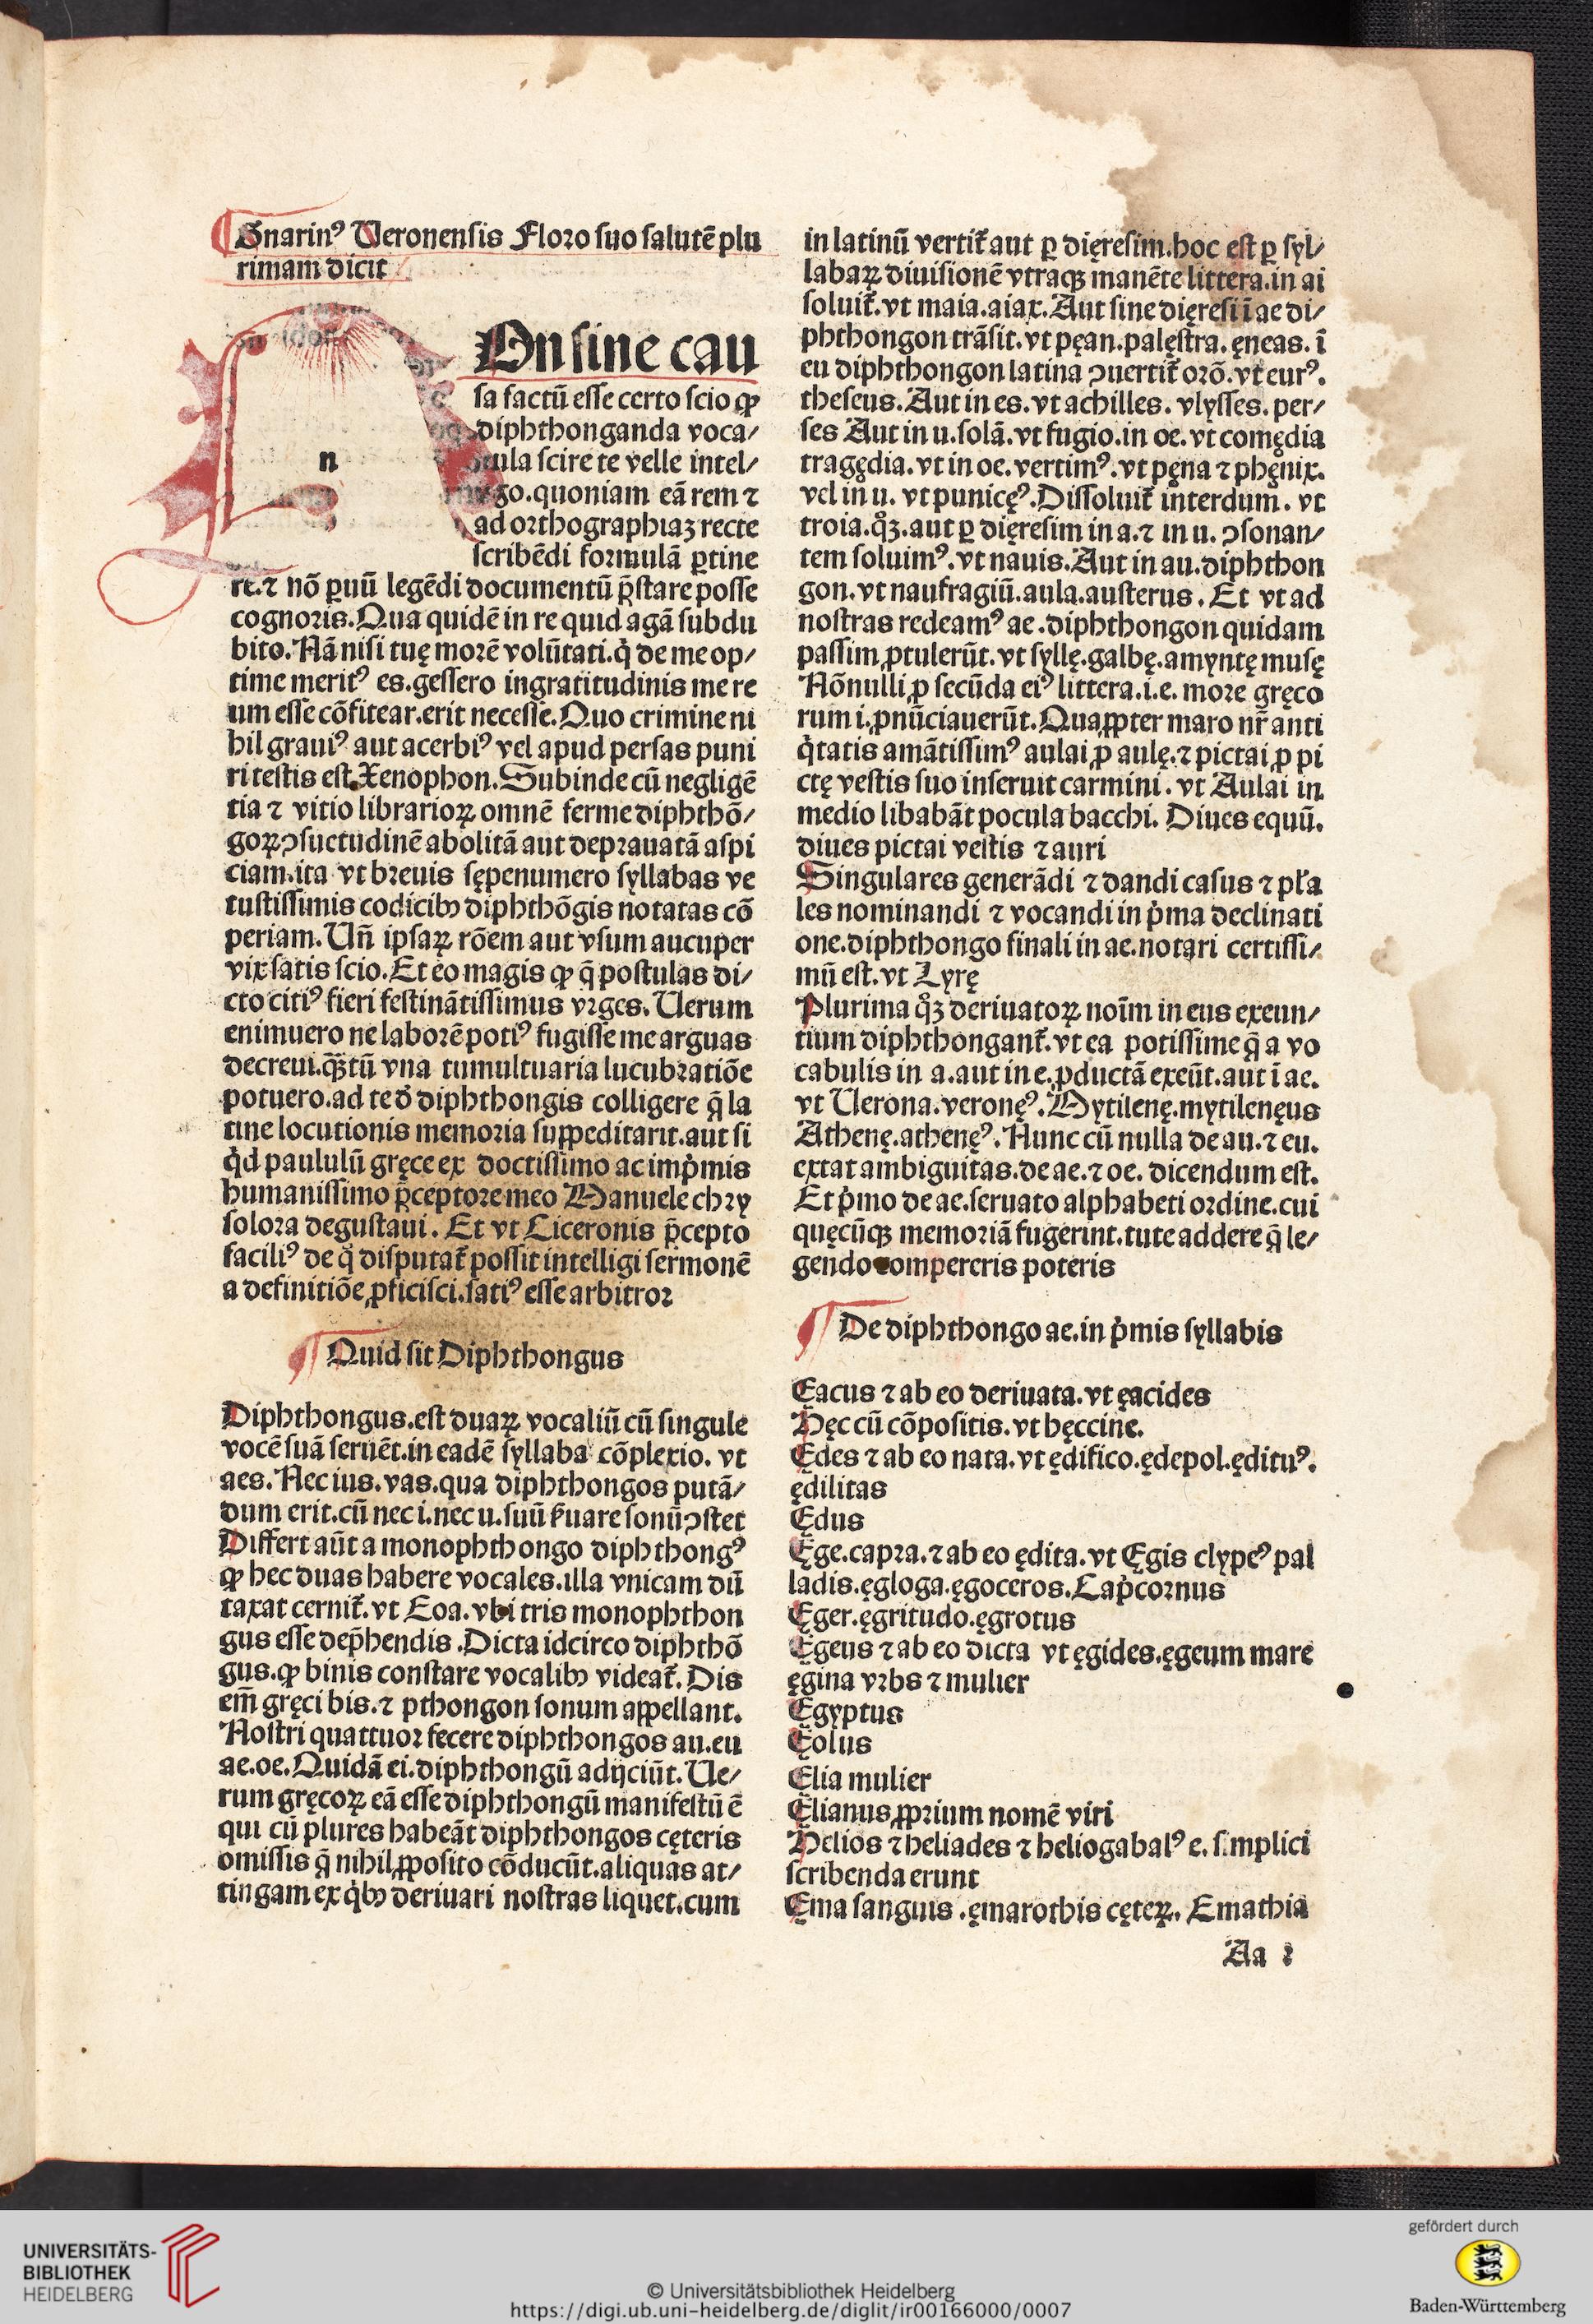 Gnarinꝰ Ueronensis Floro suo salutē plu
rimam dicit
n
On sine cau
sa factū esse certo scio ꝙ
diphthonganda voca/
bula scire te velle intel/
ligo.quoniam eā rem ⁊
ad orthographiaꝫ recte
scribēdi formulā ꝑtine
re.⁊ nō ꝑuū legēdi documentū p̄stare posse
cognoris.Qua quidē in re quid agā subdu
bito.Nā nisi tuę morē volūtati.q̇ de me op/
time meritꝰ es.gessero ingratitudinis me re
um esse cōfitear.erit necesse.Quo crimine ni
hil grauiꝰ aut acerbiꝰ vel apud persas puni
ri testis est.Xenophon.Subinde cū negligē
tia ⁊ vitio librarioꝝ omnē ferme diphthō/
goꝝ ↄsuetudinē abolitā aut deprauatā aspi
ciam.ita vt breuis sępenumero syllabas ve
tustissimis codicibꝰ diphthōgis notatas cō
periam.Un̄ ipsaꝝ rōem aut vsum aucuper
vix satis scio.Et eo magis ꝙ q̄ postulas di/
cto citiꝰ fieri festinātissimus vrges.Uerum
enimuero ne laborē potiꝰ fugisse me arguas
decreui.qȝ̄tū vna tumultuaria lucubratiōe
potuero.ad te d̕ diphthongis colligere q̄ la
tine locutionis memoria suppeditarit.aut si
q̇d paululū gręce ex doctissimo ac imp̍mis
humanissimo p̄ceptore meo Manuele chry
solora degustaui. Et vt Ciceronis p̄cepto
faciliꝰ de q̊ disputat᷑ possit intelligi sermonē
a definitiōe ꝓficisci.satiꝰ esse arbitror
¶ Quid sit Diphthongus
Diphthongus.est duaꝝ vocaliū cū singule
vocē suā seruēt.in eadē syllaba cōplexio. vt
aes.Nec ius.vas.qua diphthongos putā/
dum erit.cū nec i.nec u.suū ẜuare sonū ↄstet
Differt aūt a monophthongo diphthongꝰ
ꝙ hec duas habere vocales.illa vnicam dū
taxat cernit᷑. vt Eoa.vbi tris monophthon
gus esse dep̄hendis .Dicta idcirco diphthō
gus.ꝙ binis constare vocalibꝰ videat᷑. Dis
em̄ gręci bis.⁊ pthongon sonum appellant.
Nostri quattuor fecere diphthongos au.eu
ae.oe.Quidā ei.diphthongū adijciūt.Ue/
rum gręcoꝝ eā esse diphthongū manifestū ē
qui cū plures habeāt diphthongos cęteris
omissis q̄ nihil ꝓposito cōducūt.aliquas at/
tingam ex q̇bꝰ deriuari nostras liquet.cum
in latinū vertit᷑ aut ꝑ dięresim.hoc est ꝑ syl/
labaꝝ diuisionē vtraqꝫ manēte littera.in ai
soluit᷑.vt maia.aiax.Aut sine dięresi ī ae di/
phthongon trāsit.vt pęan.palęstra.ęneas. ī
eu diphthongon latina ↄuertit᷑ orō.vt eurꝰ.
theseus.Aut in es.vt achilles. vlysses. per/
ses Aut in u.solā.vt fugio.in oe.vt comędia
tragędia.vt in oe.vertimꝰ.vt pęna ⁊ phęnix.
vel in u. vt punicęꝰ.Dissoluit᷑ interdum. vt
troia.qꝫ̊.aut ꝑ dięresim in a.⁊ in u. ↄsonan/
tem soluimꝰ.vt nauis.Aut in au.diphthon
gon.vt naufragiū.aula.austerus. Et vt ad
nostras redeamꝰ ae .diphthongon quidam
passim ꝓtulerūt.vt syllę.galbę.amyntę musę
Nōnulli ꝓ secūda eiꝰ littera.i.e. more gręco
rum i.ꝓnūciauerūt.Quapropter maro nr̄ anti
q̇tatis amātissimꝰ aulai ꝓ aulę.⁊ pictai ꝓ pi
ctę vestis suo inseruit carmini. vt Aulai in
medio libabāt pocula bacchi. Diues equū.
diues pictai vestis ⁊ auri
Singulares generādi ⁊ dandi casus ⁊ pl̵a
les nominandi ⁊ vocandi in p̍ma declinati
one.diphthongo finali in ae.notari certissi/
mū est.vt Lyrę
Plurima qꝫ̊ deriuatoꝝ noīm in eus exeun/
tium diphthongant᷑.vt ea potissime q̄ a vo
cabulis in a.aut in e.ꝓductā exeūt.aut ī ae.
vt Uerona.veronęꝰ.Mytilenę.mytilenęus
Athenę.athenęꝰ.Nunc cū nulla de au.⁊ eu.
extat ambiguitas.de ae.⁊ oe. dicendum est.
Et p̍mo de ae.seruato alphabeti ordine.cui
quęcūqꝫ memoriā fugerint.tute addere q̄ le/
gendo compereris poteris
¶ De diphthongo ae.in p̍mis syllabis
Ęacus ⁊ ab eo deriuata.vt ęacides
Hęc cū cōpositis.vt hęccine.
Ędes ⁊ ab eo nata.vt ędifico.ędepol.ędituꝰ.
ędilitas
Ędus
Ęge.capra.⁊ ab eo ędita.vt Ęgis clypeꝰ pal
ladis.ęgloga.ęgoceros.Cap̍cornus
Ęger.ęgritudo.ęgrotus
Ęgeus ⁊ ab eo dicta vt ęgides.ęgeum mare
ęgina vrbs ⁊ mulier
Ęgyptus
Ęolus
Ęlia mulier
Ęlianus ꝓprium nomē viri
Helios ⁊ heliades ⁊ heliogabalꝰ e. simplici
scribenda erunt
Ęma sanguis .ęmarothis cęteꝝ. Emathia
Aa 2
UNIVERSITÄTS-
BIBLIOTHEK
HEIDELBERG
© Universitätsbibliothek Heidelberg
https://digi.ub.uni-heidelberg.de/diglit/ir00166000/0007
gefördert durch
Baden-Württemberg